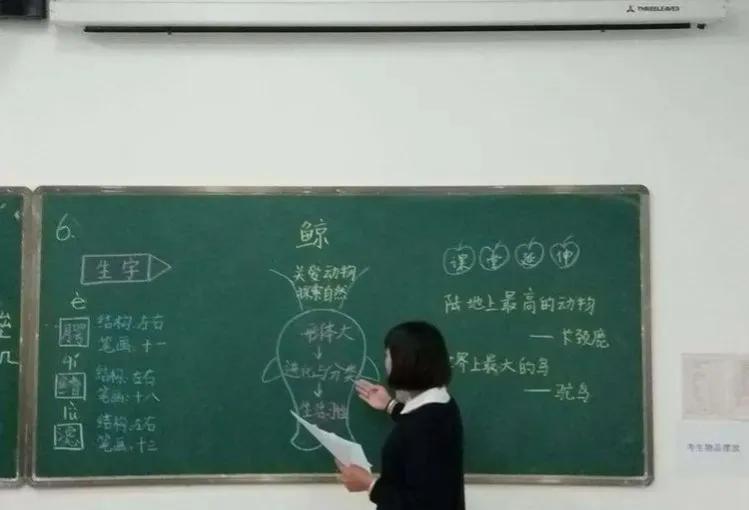 THREELEAVES
6.
鲸
生字
课堂延伸
关爱动物
探索自然
陆地上最高的动物
——长颈鹿
界上最大的鸟
——驼鸟
è
结构:左右
笔画:十一
qí
鳍
结构:左右
笔画:十八
lǜ
滤
结构:左右
笔画:十三
形体大
↓
进化与分类
↓
生活习性
考生物品摆放